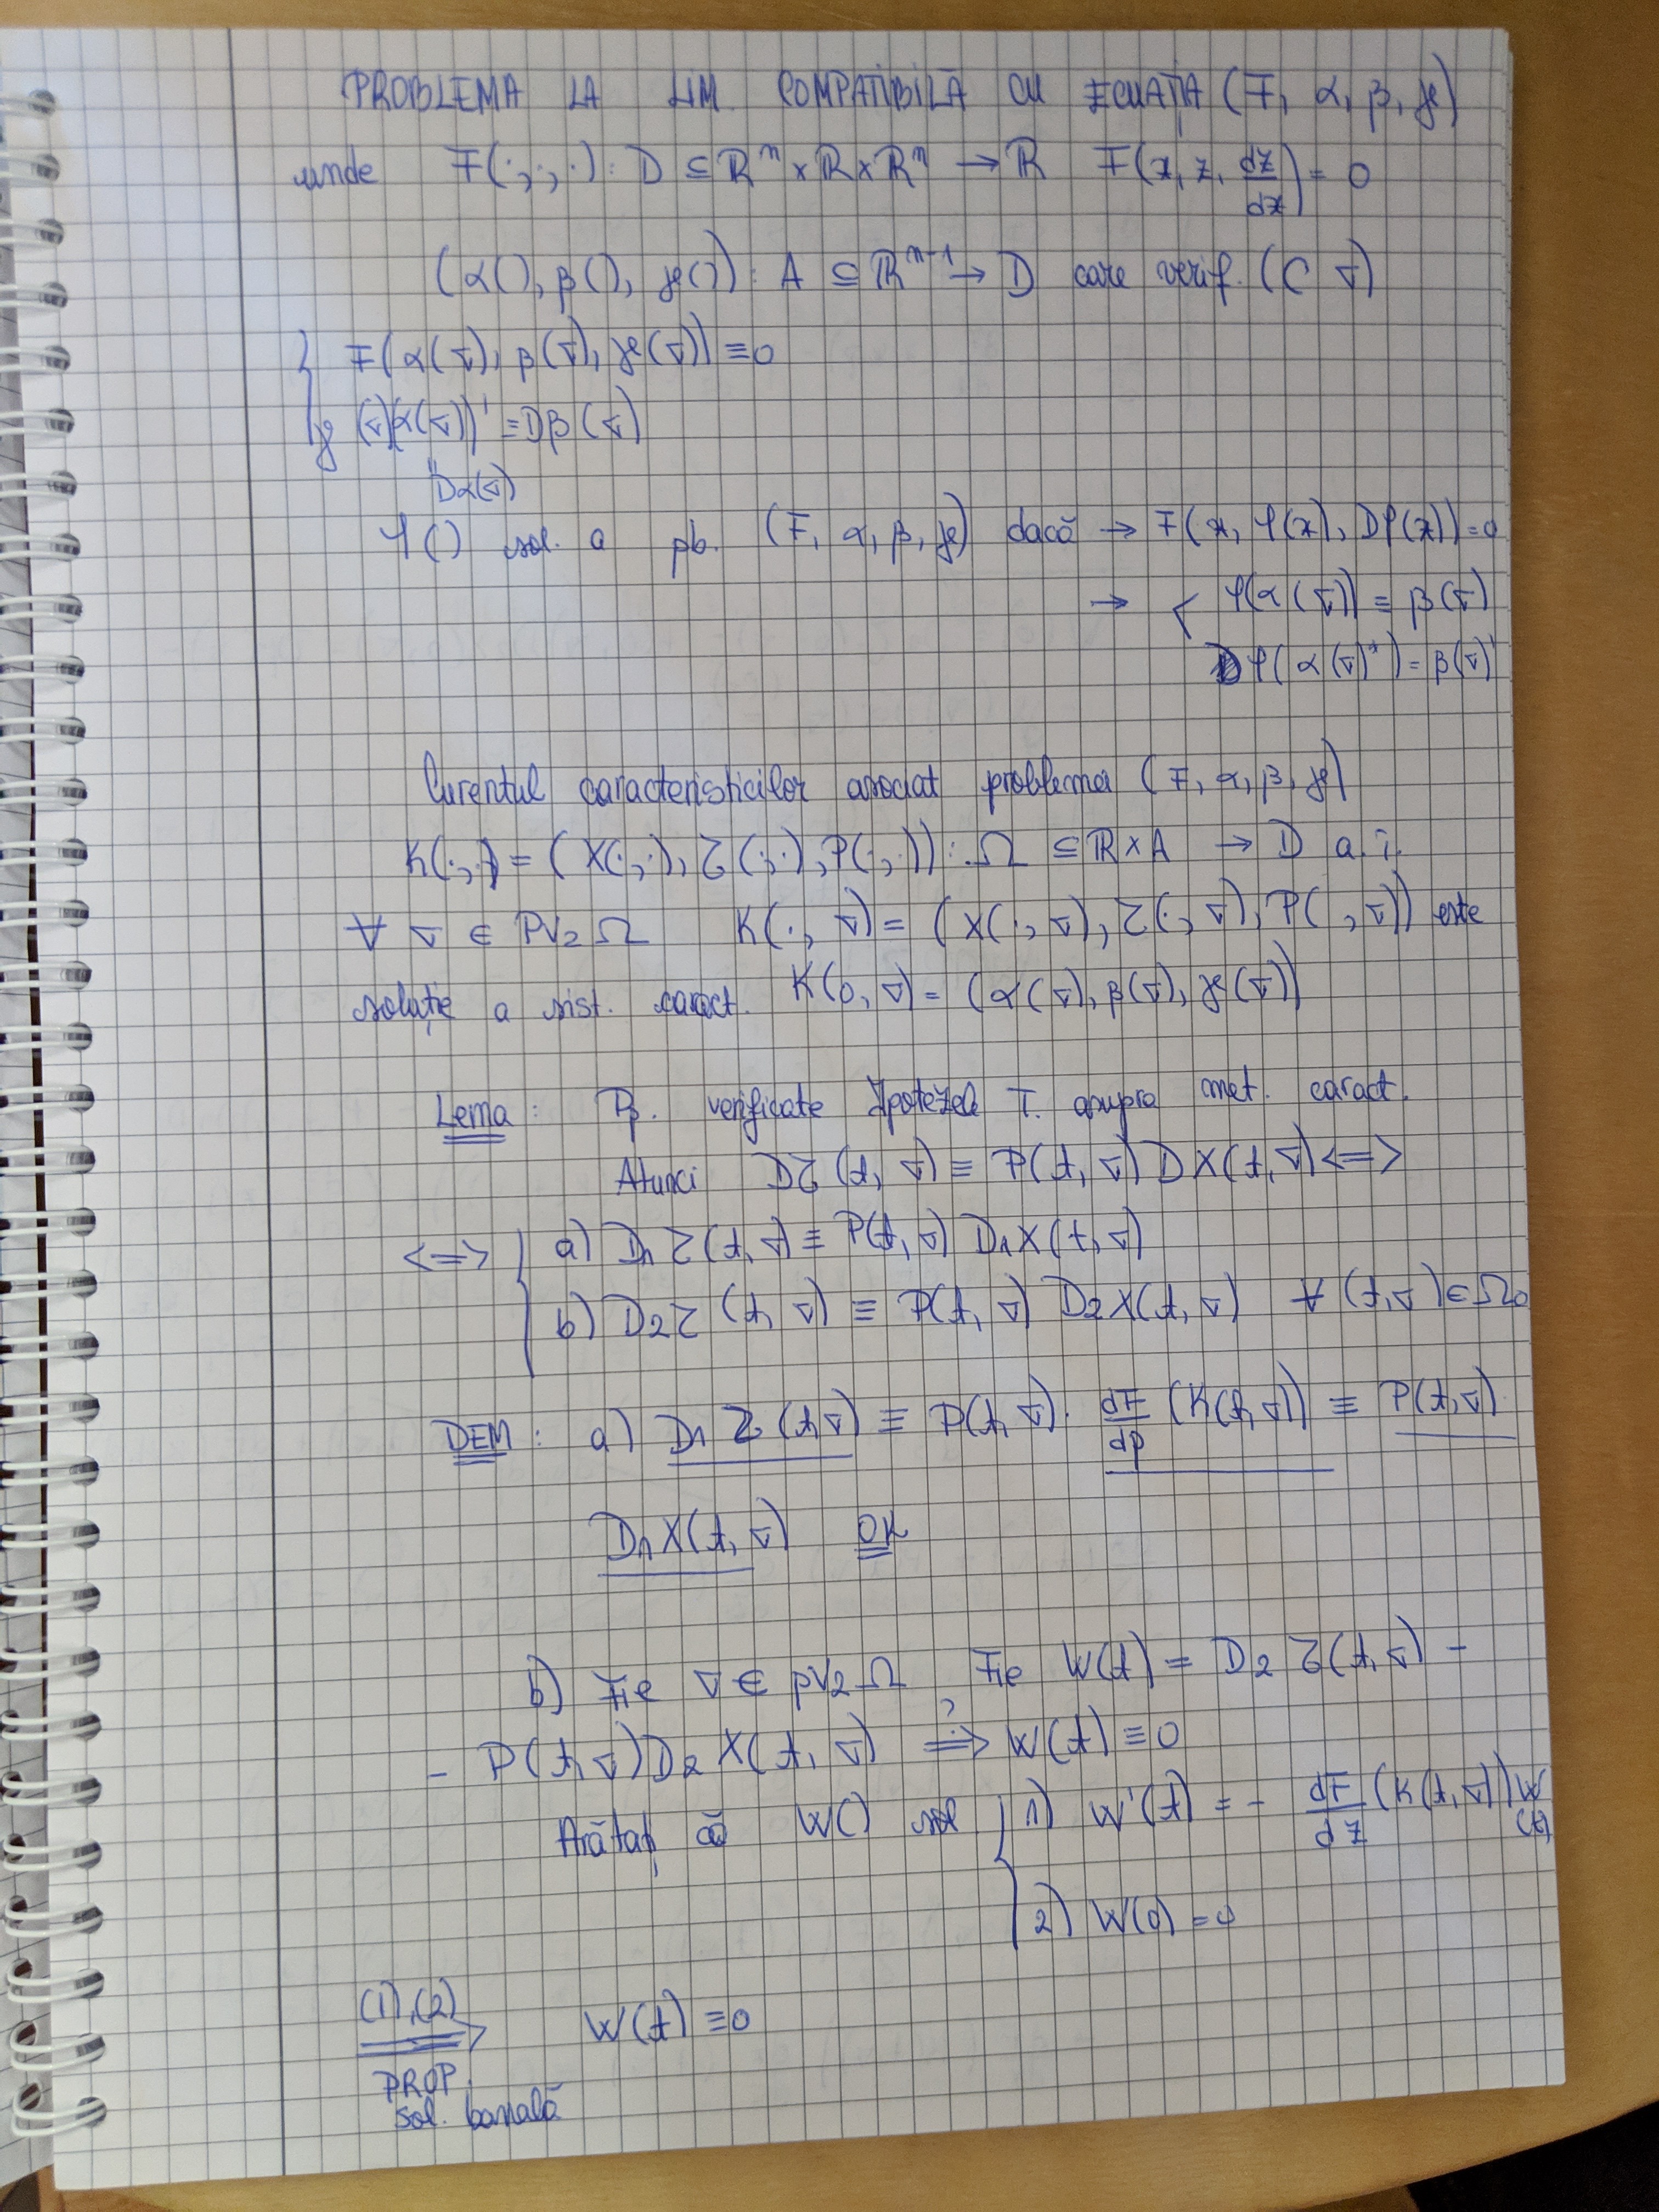 PROBLEMA LA LIM. COMPATIBILĂ CU ECUAȚIA (F, α, β, γ)
unde F(·,·,·): D ⊆ ℝⁿ×ℝ×ℝⁿ → ℝ F(x, z, dz/dx) = 0
(α(), β(), γ()): A ⊆ ℝⁿ⁻¹ → D care verif. (C ∇)
{ F(α(∇), β(∇), γ(∇)) ≡ 0
γ(∇)(α(∇))' ≡ Dβ(∇)
" Dα(∇)
φ() sol. a pb. (F, α, β, γ) dacă → F(x, φ(x), Dφ(x)) = 0
→ { φ(α(∇)) ≡ β(∇)
Dφ(α(∇)') = β(∇)'
Curentul caracteristicilor asociat problemei (F, α, β, γ)
K(·,·) = (X(·,·), Z(·,·), P(·,·)): Ω ⊆ ℝ×A → D a.î.
∀ ∇ ∈ pr₂Ω K(·, ∇) = (X(·, ∇), Z(·, ∇), P( , ∇)) este
soluție a sist. caract. K(0, ∇) = (α(∇), β(∇), γ(∇))
Lema: Pp. verificate Ipotezele T. asupra met. caract.
Atunci DZ(t, ∇) ≡ P(t, ∇) DX(t, ∇) <=>
<=> { a) D₁Z(t, ∇) ≡ P(t, ∇) D₁X(t, ∇)
b) D₂Z(t, ∇) ≡ P(t, ∇) D₂X(t, ∇) ∀ (t, ∇) ∈ Ω₀
DEM: a) D₁Z(t, ∇) ≡ P(t, ∇) · dF/dp (K(t, ∇)) ≡ P(t, ∇)
D₁X(t, ∇) OK
b) Fie ∇ ∈ pr₂Ω Fie W(t) = D₂Z(t, ∇) -
- P(t, ∇) D₂X(t, ∇) ?=> W(t) ≡ 0
Arătați că W() sol { 1) W'(t) = - dF/dz (K(t, ∇)) W(t)
2) W(0) = 0
(1),(2) => W(t) ≡ 0
PROP.
sol. banală